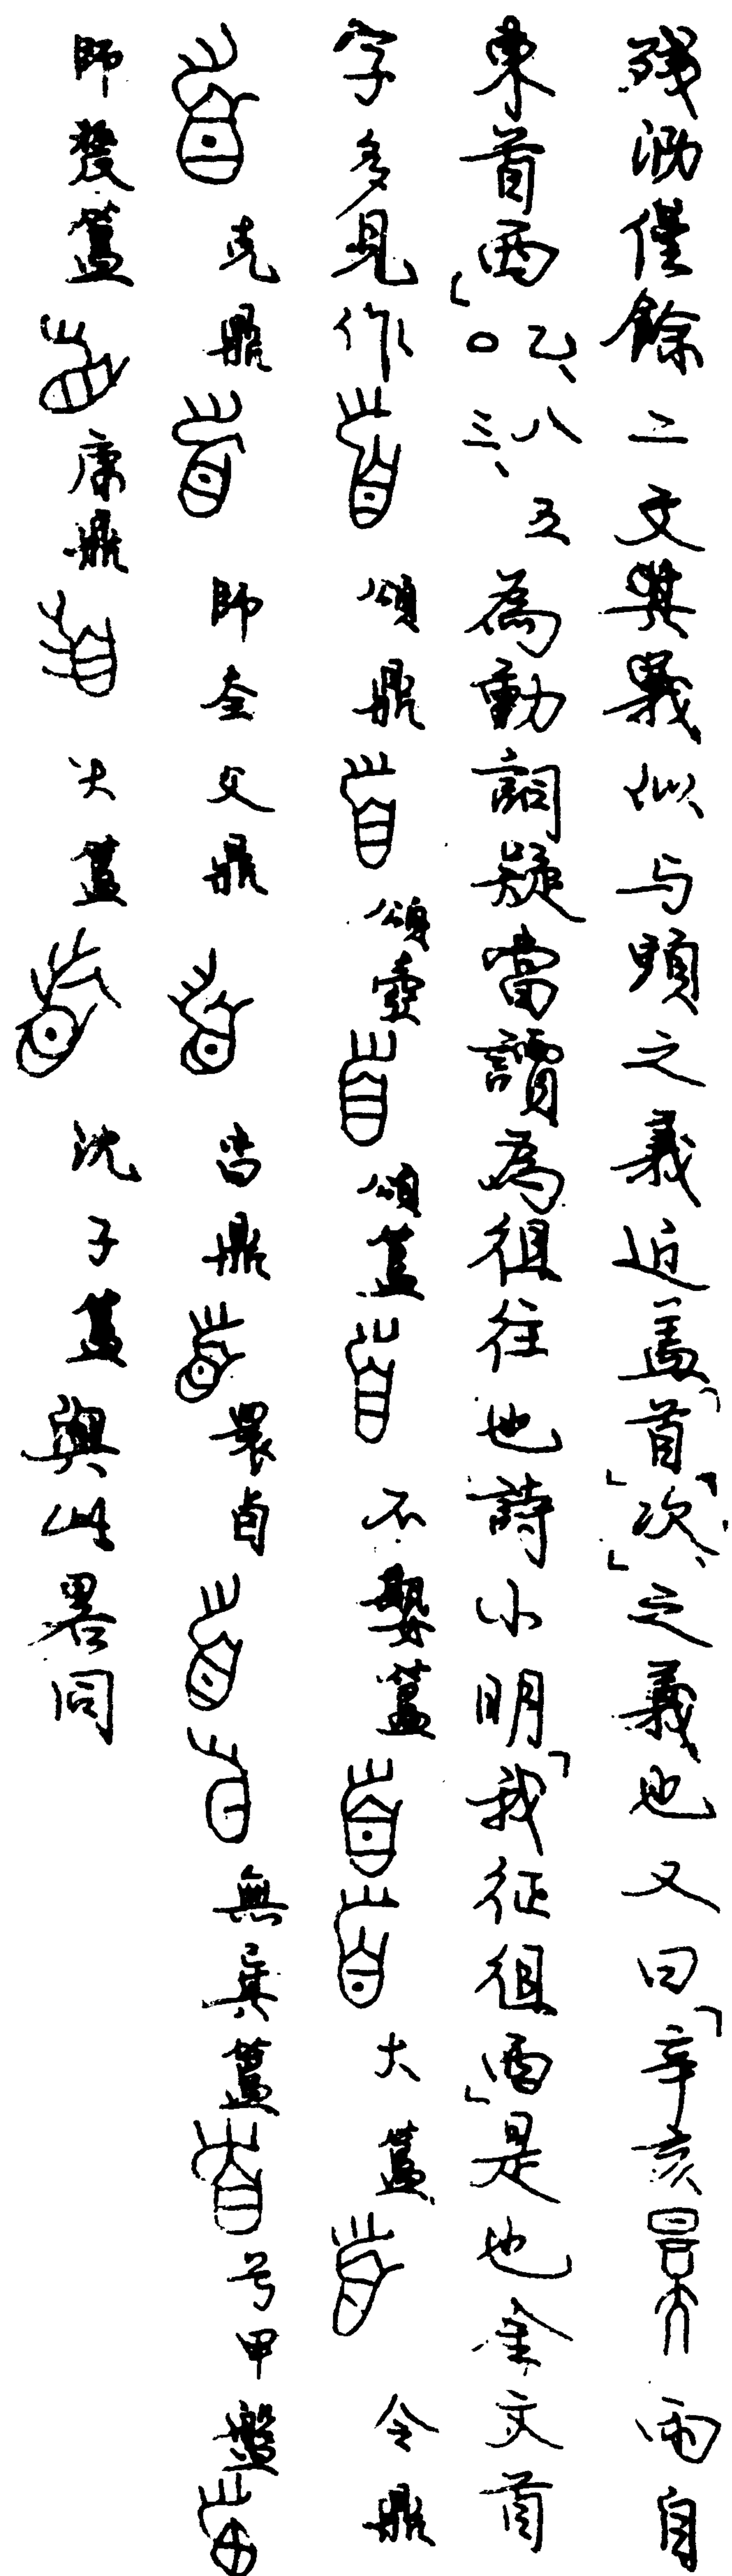 殘泐僅餘二文其義似与頭之義近蓋「首」「次」之義也又曰「辛亥雨自
東首西」乙、八五〇三、為動詞疑當讀為徂往也詩小明「我征徂西」是也金文首
字多見作頌鼎頌壺頌簋不𡢁簋大簋令鼎
克鼎師奎父鼎舀鼎睘卣無㠱簋兮甲盤
師𤼈簋康鼎大簋沈子簋與此畧同